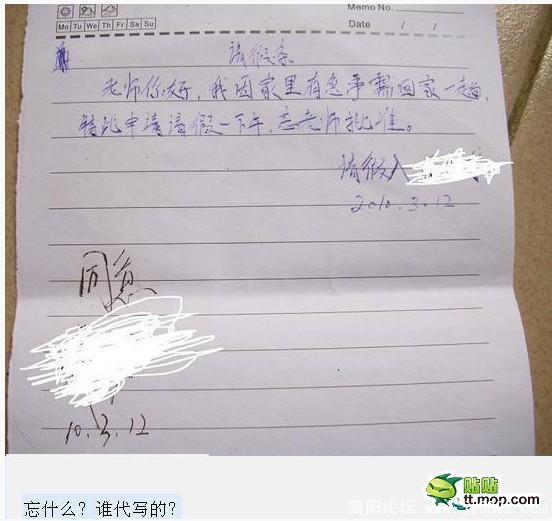 Memo No.
Mo Tu We Th Fr Sa Su
Date / /
请假条
老师你好,我因家里有急事需回家一趟,
特此申请请假一下午,忘老师批准。
请假人
2010.3.12
同意
10.3.12
忘什么？谁代写的？
贴贴
tt.mop.com
简阳论坛